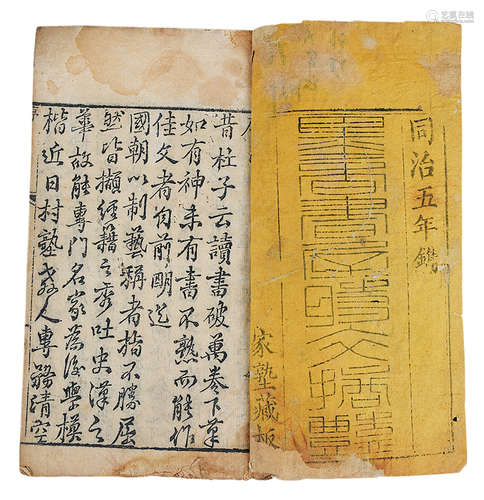 同治五年鐫
家塾藏板
昔杜子云讀書破萬卷下筆
如有神未有書不熟而能作
佳文者自前明迄
國朝以制藝稱者指不勝屈
然皆擷經籍之秀吐史漢之
華故能專門名家為後學模
楷近日村塾教人專務清空